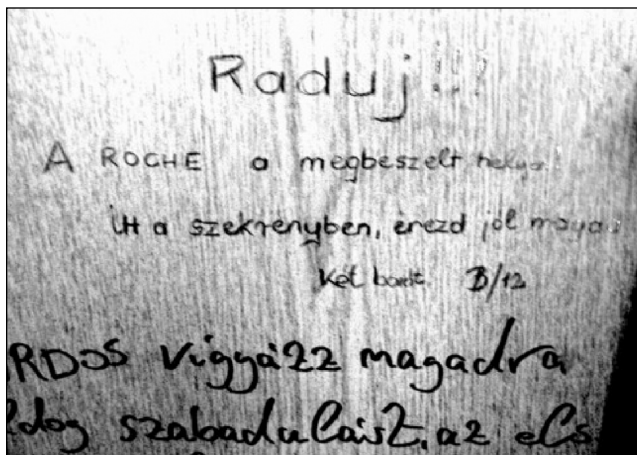 Raduj!!!
A ROCHE a megbeszelt helyen
itt a szekrenyben, érezd jól magad
Két barát B/12
RDOS vigyázz magadra
ldog szabadulást, az els